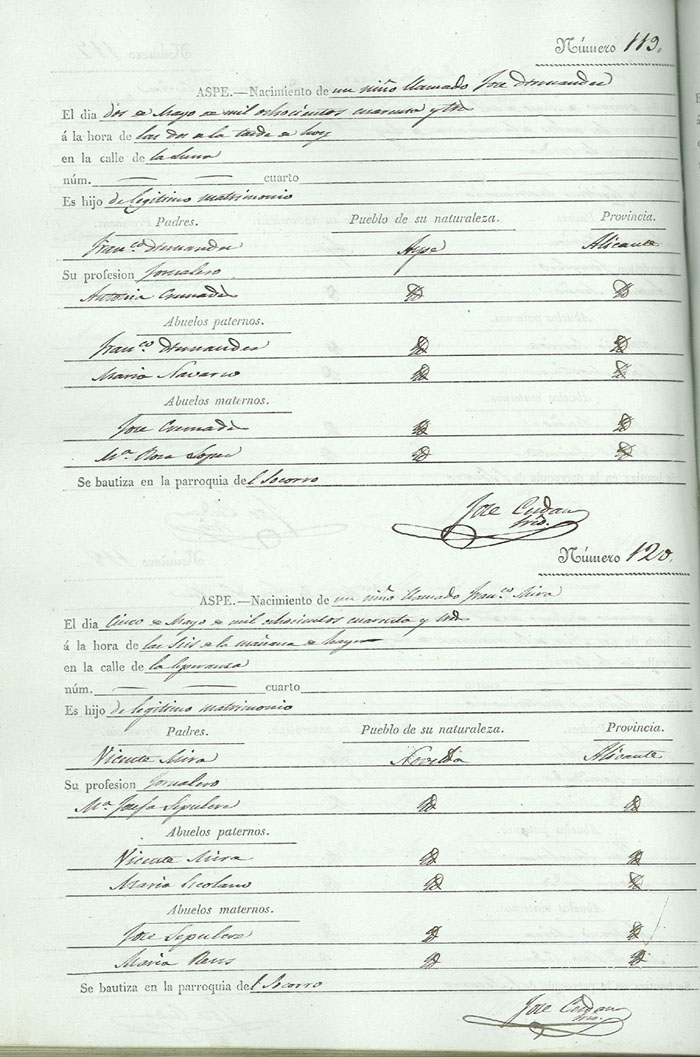 Número 119.
ASPE.—Nacimiento de un niño llamado Jose
El dia dos de Mayo de mil ochocientos cuarenta y tres
á la hora de las dos de la tarde de hoy
en la calle de la Luna
núm. — — cuarto
Es hijo de legitimo matrimonio
Padres. Pueblo de su naturaleza. Provincia.
Fran.co Aspe Alicante
Su profesion Jornalero
Antonia Cremades Id Id
Abuelos paternos.
Fran.co Id Id
Maria Navarro Id Id
Abuelos maternos.
Jose Cremades Id Id
M.a Rosa Lopez Id Id
Se bautiza en la parroquia del Socorro
Jose Cerdan
Número 120.
ASPE.—Nacimiento de un niño llamado Fran.co Mira
El dia Cinco de Mayo de mil ochocientos cuarenta y tres
á la hora de las Seis de la mañana de hoy
en la calle de la Esperansa
núm. — — cuarto
Es hijo de legitimo matrimonio
Padres. Pueblo de su naturaleza. Provincia.
Vicente Mira Novelda Alicante
Su profesion Jornalero
M.a Josefa Sepulcre Id Id
Abuelos paternos.
Vicente Mira Id Id
Maria Escolano Id Id
Abuelos maternos.
Jose Sepulcre Id Id
Maria Id Id
Se bautiza en la parroquia del Socorro
Jose Cerdan